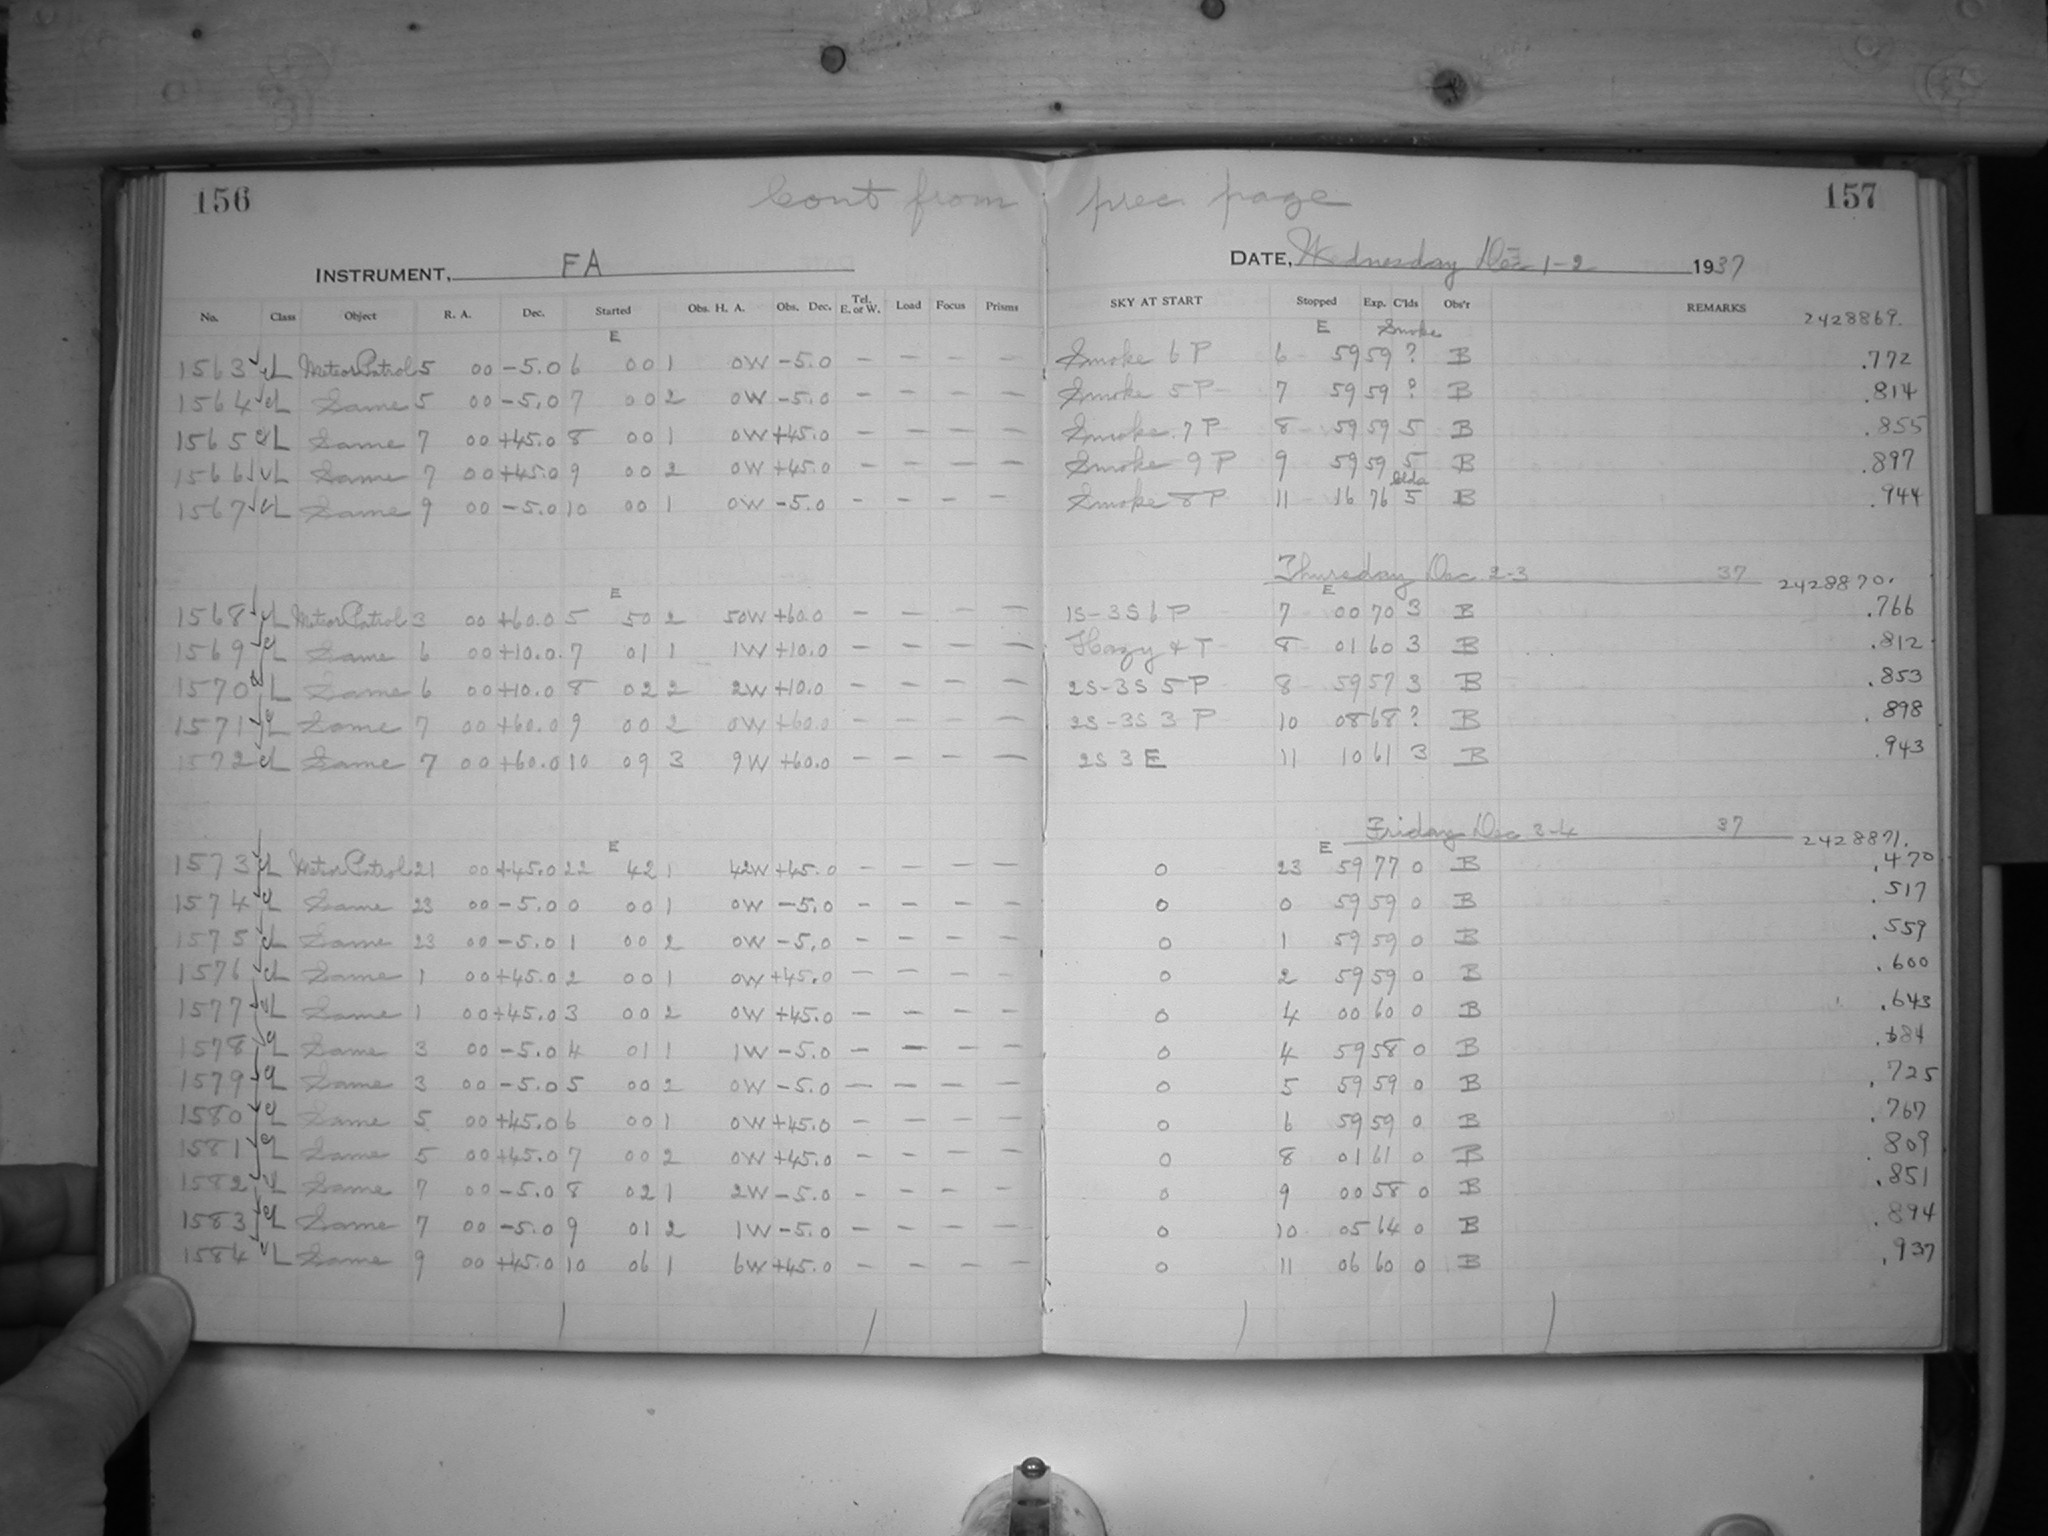 156 Cont from prec. page 157
INSTRUMENT, FA DATE, Wednesday Dec 1-2 1937
No. Class Object R. A. Dec. Started Obs. H. A. Obs. Dec. Tel. E. or W. Load Focus Prisms SKY AT START Stopped Exp. C'lds Obs'r REMARKS 2428869.
E E Smoke
1563 L Meteor Patrol 5 00 -5.0 6 00 1 0W -5.0 - - - - Smoke 6 P 6 59 59 ? B .772
1564 L Same 5 00 -5.0 7 00 2 0W -5.0 - - - - Smoke 5 P 7 59 59 ? B .814
1565 L Same 7 00 +45.0 8 00 1 0W +45.0 - - - - Smoke 7 P 8 59 59 5 B .855
1566 L Same 7 00 +45.0 9 00 2 0W +45.0 - - - - Smoke 9 P 9 59 59 5 B .897
Clds
1567 L Same 9 00 -5.0 10 00 1 0W -5.0 - - - - Smoke 8 P 11 16 76 5 B .944
Thursday Dec 2-3 37 2428870.
E E
1568 L Meteor Patrol 3 00 +60.0 5 50 2 50W +60.0 - - - - 1S-3S 6 P 7 00 70 3 B .766
1569 L Same 6 00 +10.0 7 01 1 1W +10.0 - - - - Hazy & T 8 01 60 3 B .812
1570 L Same 6 00 +10.0 8 02 2 2W +10.0 - - - - 2S-3S 5 P 8 59 57 3 B .853
1571 L Same 7 00 +60.0 9 00 2 0W +60.0 - - - - 2S-3S 3 P 10 08 68 ? B .898
1572 L Same 7 00 +60.0 10 09 3 9W +60.0 - - - - 2S 3 E 11 10 61 3 B .943
Friday Dec 3-4 37 2428871.
E E
1573 L Meteor Patrol 21 00 +45.0 22 42 1 42W +45.0 - - - - 0 23 59 77 0 B .470
1574 L Same 23 00 -5.0 0 00 1 0W -5.0 - - - - 0 0 59 59 0 B .517
1575 L Same 23 00 -5.0 1 00 2 0W -5.0 - - - - 0 1 59 59 0 B .559
1576 L Same 1 00 +45.0 2 00 1 0W +45.0 - - - - 0 2 59 59 0 B .600
1577 L Same 1 00 +45.0 3 00 2 0W +45.0 - - - - 0 4 00 60 0 B .643
1578 L Same 3 00 -5.0 4 01 1 1W -5.0 - - - - 0 4 59 58 0 B .684
1579 L Same 3 00 -5.0 5 00 2 0W -5.0 - - - - 0 5 59 59 0 B .725
1580 L Same 5 00 +45.0 6 00 1 0W +45.0 - - - - 0 6 59 59 0 B .767
1581 L Same 5 00 +45.0 7 00 2 0W +45.0 - - - - 0 8 01 61 0 B .809
1582 L Same 7 00 -5.0 8 02 1 2W -5.0 - - - - 0 9 00 58 0 B .851
1583 L Same 7 00 -5.0 9 01 2 1W -5.0 - - - - 0 10 05 64 0 B .894
1584 L Same 9 00 +45.0 10 06 1 6W +45.0 - - - - 0 11 06 60 0 B .937